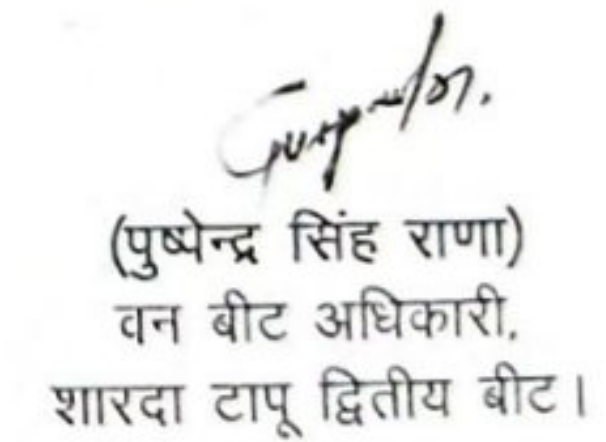 (पुष्पेन्द्र सिंह राणा)
वन बीट अधिकारी,
शारदा टापू द्वितीय बीट।